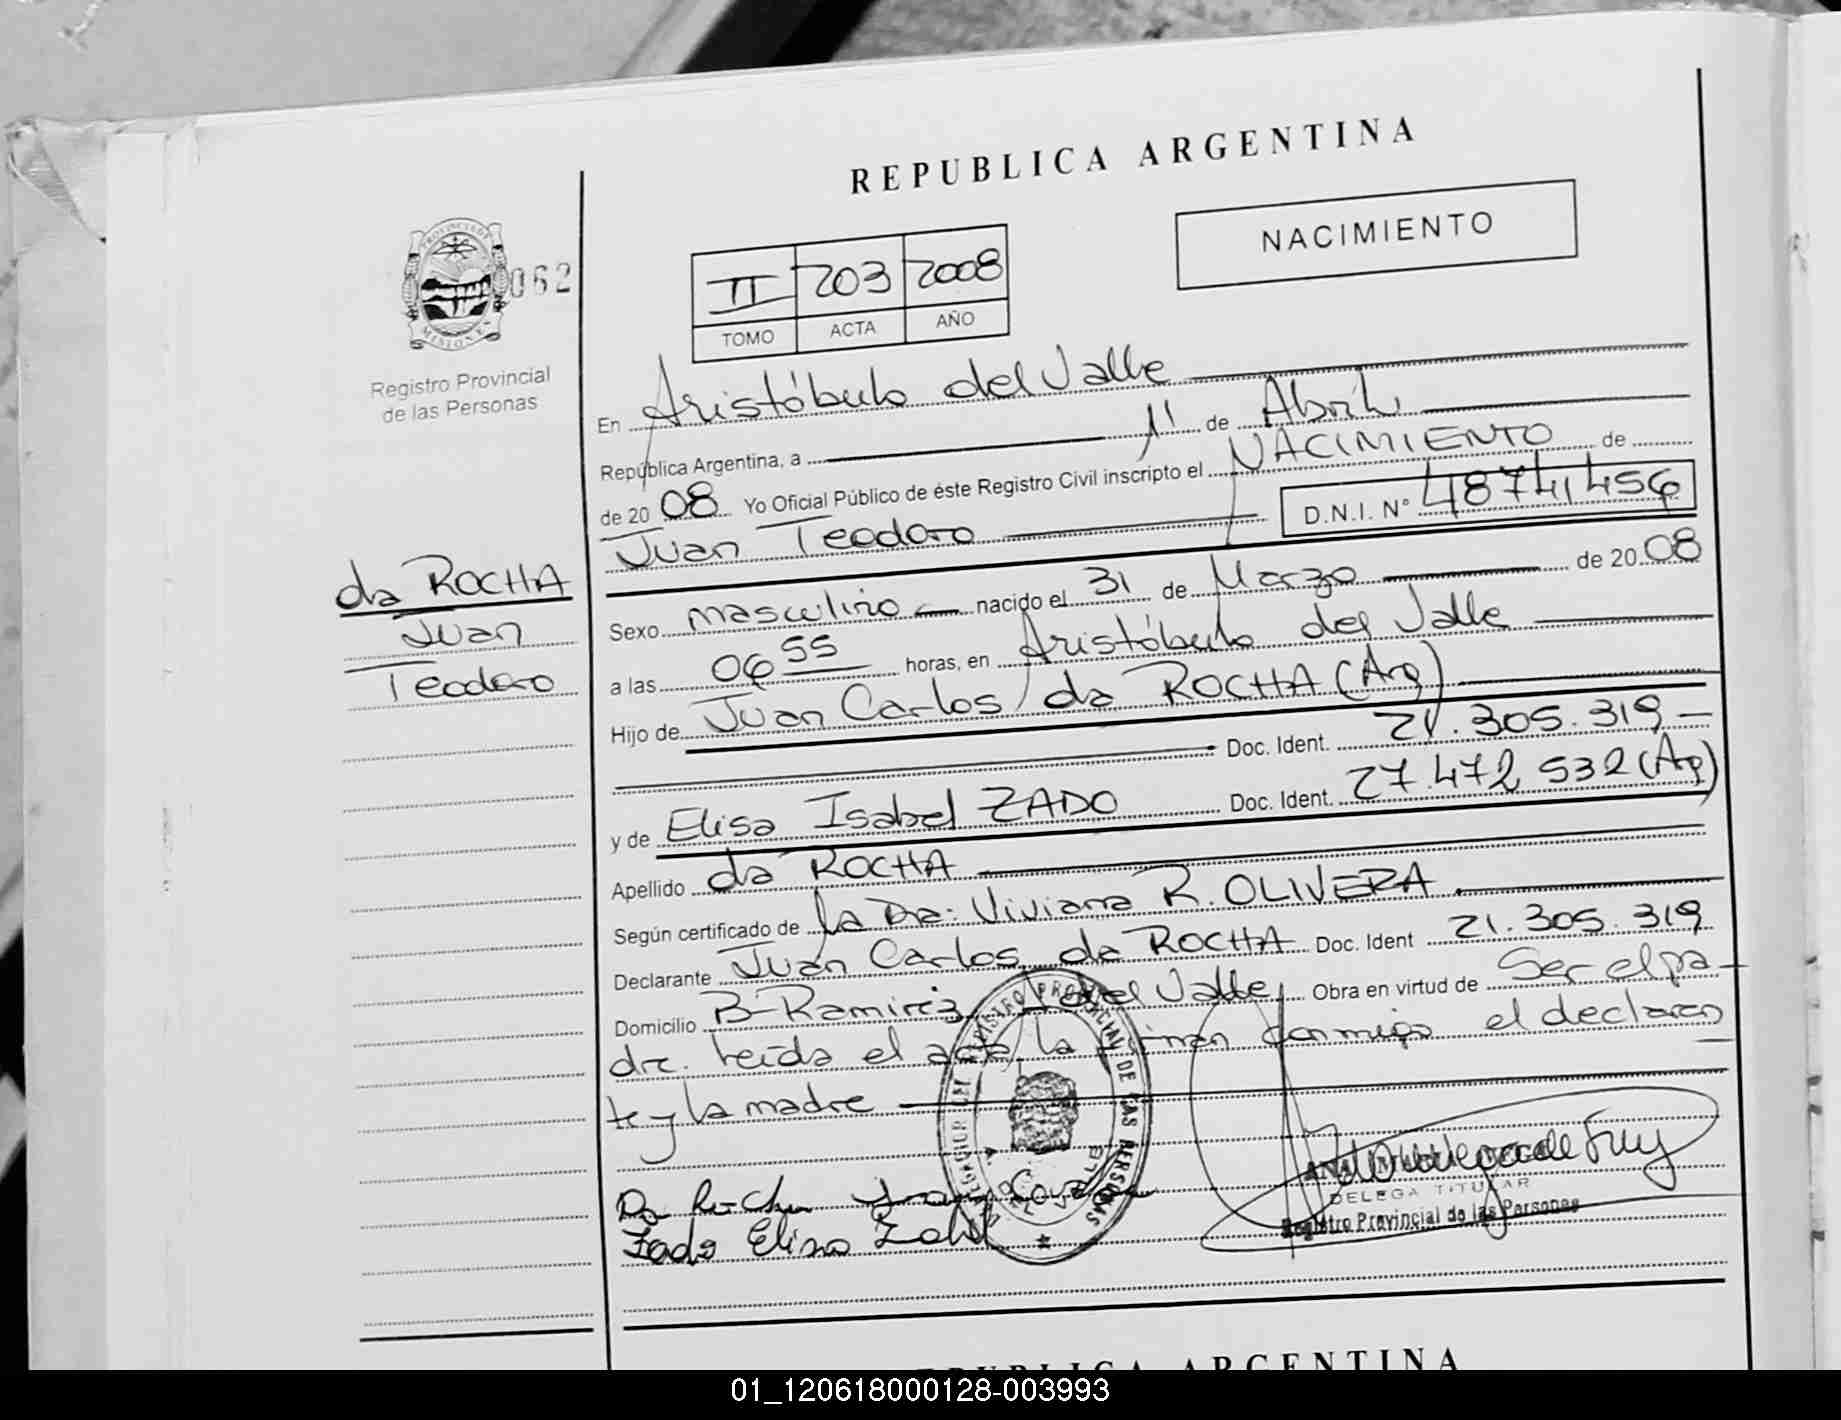 REPUBLICA ARGENTINA
NACIMIENTO
PROVINCIA DE
MISIONES
062
Registro Provincial
de las Personas
II 203 2008
TOMO ACTA AÑO
En Aristóbulo del Valle
República Argentina, a 11 de Abril
de 20 08 Yo Oficial Público de éste Registro Civil inscripto el NACIMIENTO de
Juan Teodoro D.N.I. N° 48741456
da ROCHA
Juan
Teodoro
Sexo masculino nacido el 31 de Marzo de 20 08
a las 06 55 horas, en Aristóbulo del Valle
Hijo de Juan Carlos da ROCHA (Arg)
Doc. Ident. 21.305.319
y de Elisa Isabel ZADO Doc. Ident. 27.472.532 (Arg)
Apellido da ROCHA
Según certificado de la Dra: Viviana R. OLIVERA
Declarante Juan Carlos da ROCHA Doc. Ident 21.305.319
Domicilio B- Ramírez del Valle Obra en virtud de Ser el pa-
dre. leída el acta la firman conmigo el declaran
te y la madre
REGISTRO PROVINCIAL DE LAS PERSONAS
Zado Elisa
DELEGA TITULAR
Registro Provincial de las Personas
REPUBLICA ARGENTINA
01_120618000128-003993